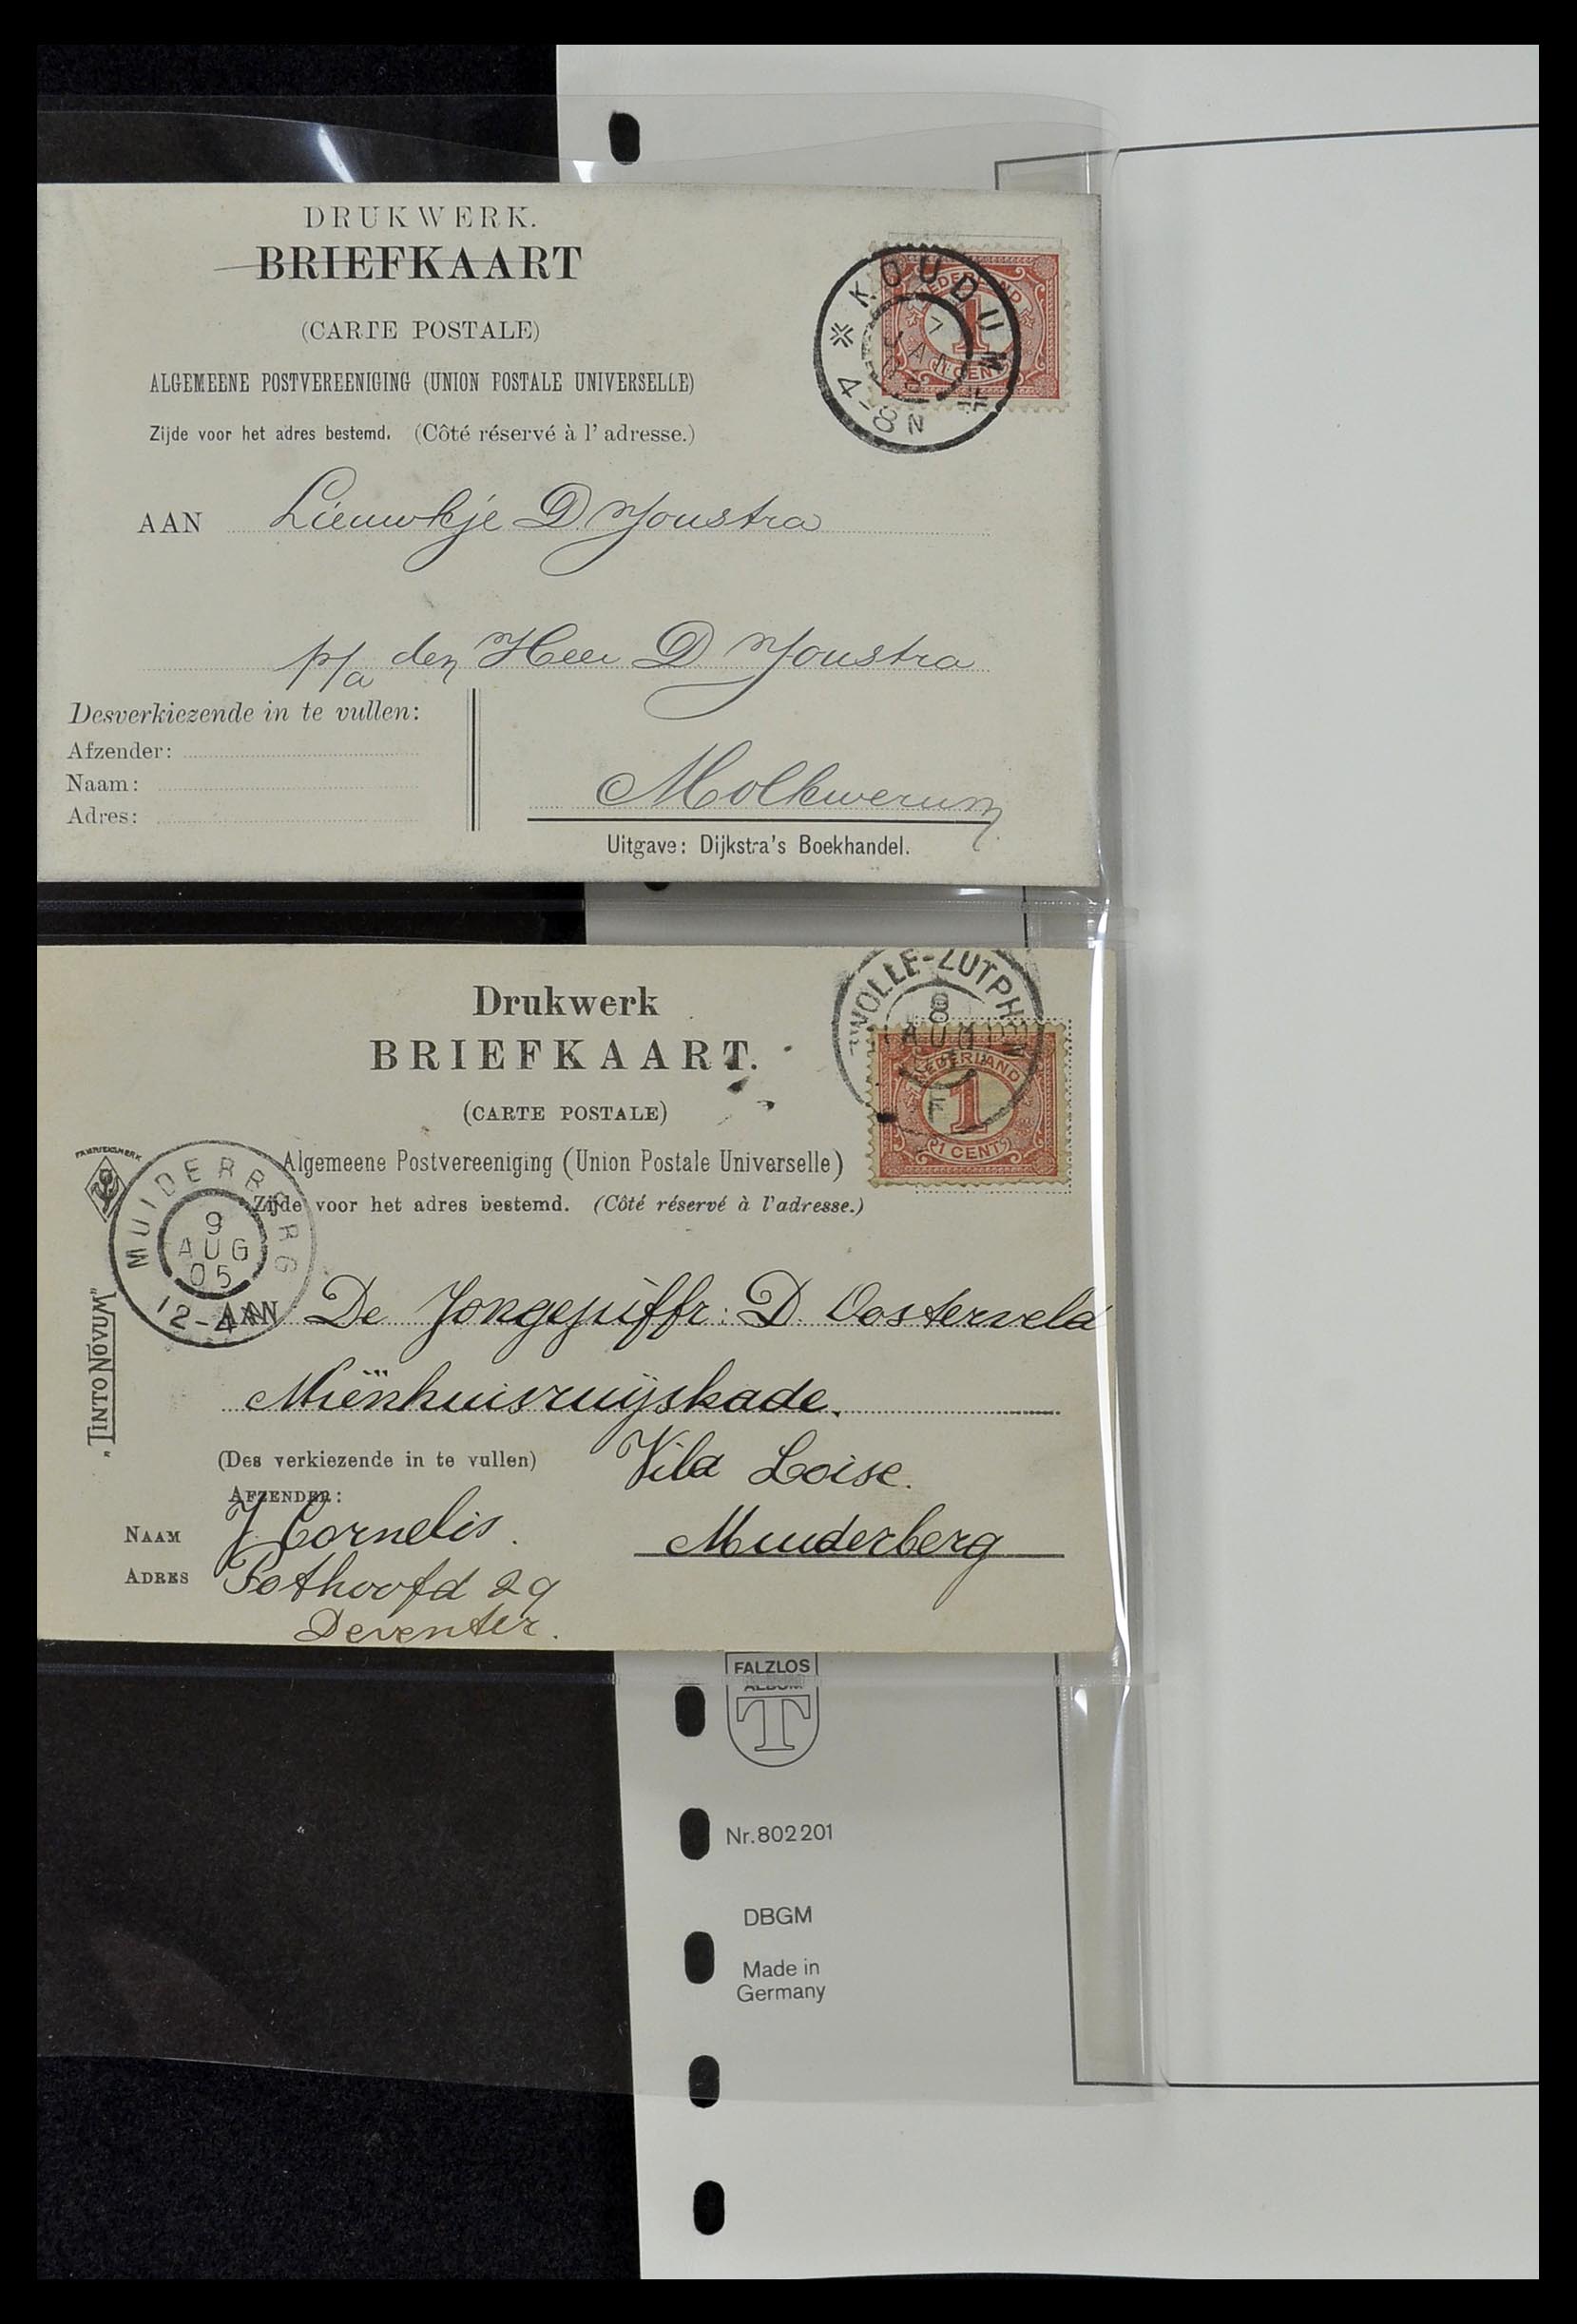 DRUKWERK.
BRIEFKAART
(CARTE POSTALE)
ALGEMEENE POSTVEREENIGING (UNION POSTALE UNIVERSELLE)
Zijde voor het adres bestemd. (Côté réservé à l' adresse.)
NEDERLAND
1
1 CENT
✻ KOUDUM ✻
7
JAN
4-8N
AAN Lieuwkje D. Youstra
p/a den Heer D. Youstra
Molkwerum
Desverkiezende in te vullen:
Afzender:
Naam:
Adres:
Uitgave: Dijkstra's Boekhandel.
Drukwerk
BRIEFKAART.
(CARTE POSTALE)
Algemeene Postvereeniging (Union Postale Universelle)
Zijde voor het adres bestemd. (Côté réservé à l'adresse.)
WOLLE-ZUTPH
8
AUG
NEDERLAND
1
1 CENT
MUIDERBERG
9
AUG
05
12-4N
"TINTO NOVUM"
AAN De Jongejuffr: D. Oosterveld
Miënhuisruijskade.
Vila Loise.
Muuderberg
(Des verkiezende in te vullen)
AFZENDER:
NAAM J. Cornelis.
ADRES Pothoofd 29
Deventer.
FALZLOS
ALBUM
T
Nr. 802201
DBGM
Made in
Germany